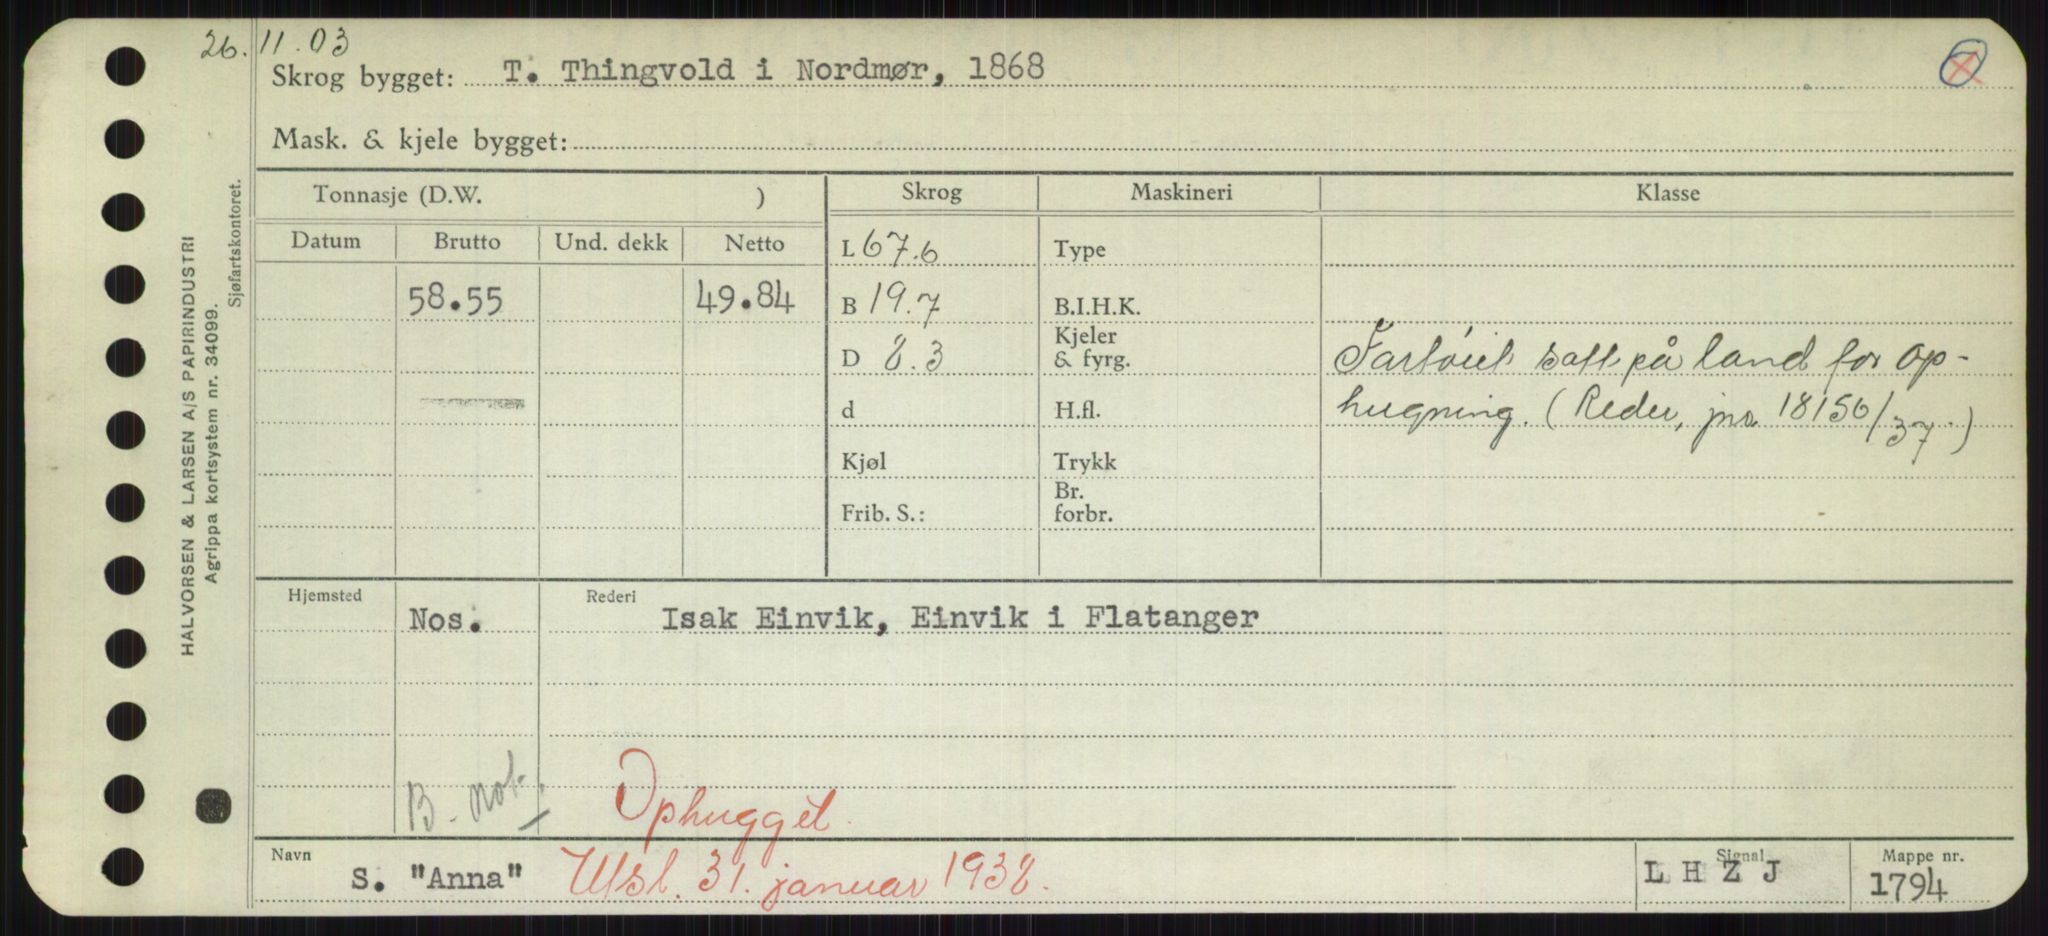 26. 11. 03
Skrog bygget: T. Thingvold i Nordmør, 1868
Mask. & kjele bygget:
Tonnasje (D.W. ) Skrog Maskineri Klasse
Datum Brutto Und. dekk Netto
L 67.6 Type
58.55 49.84 B 19.7 B.I.H.K.
D 8.3 Kjeler & fyrg. Fartöiet satt på land for op-
d H.fl. hugning. (Reder, jnr 18156/37.)
Kjøl Trykk
Frib. S.: Br. forbr.
Hjemsted Nos. Rederi Isak Einvik, Einvik i Flatanger
B. not.
Ophugget.
Navn S. "Anna" Utsl. 31. januar 1938. Signal L H Z J Mappe nr. 1794
HALVORSEN & LARSEN A/S PAPIRINDUSTRI
Agrippa kortsystem nr. 34099.
Sjøfartskontoret.